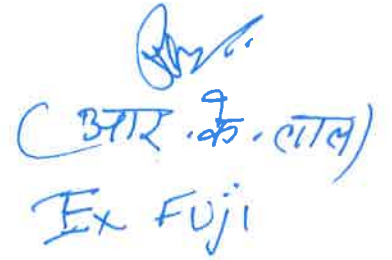 (आर.के.लाल)
Ex Fuji